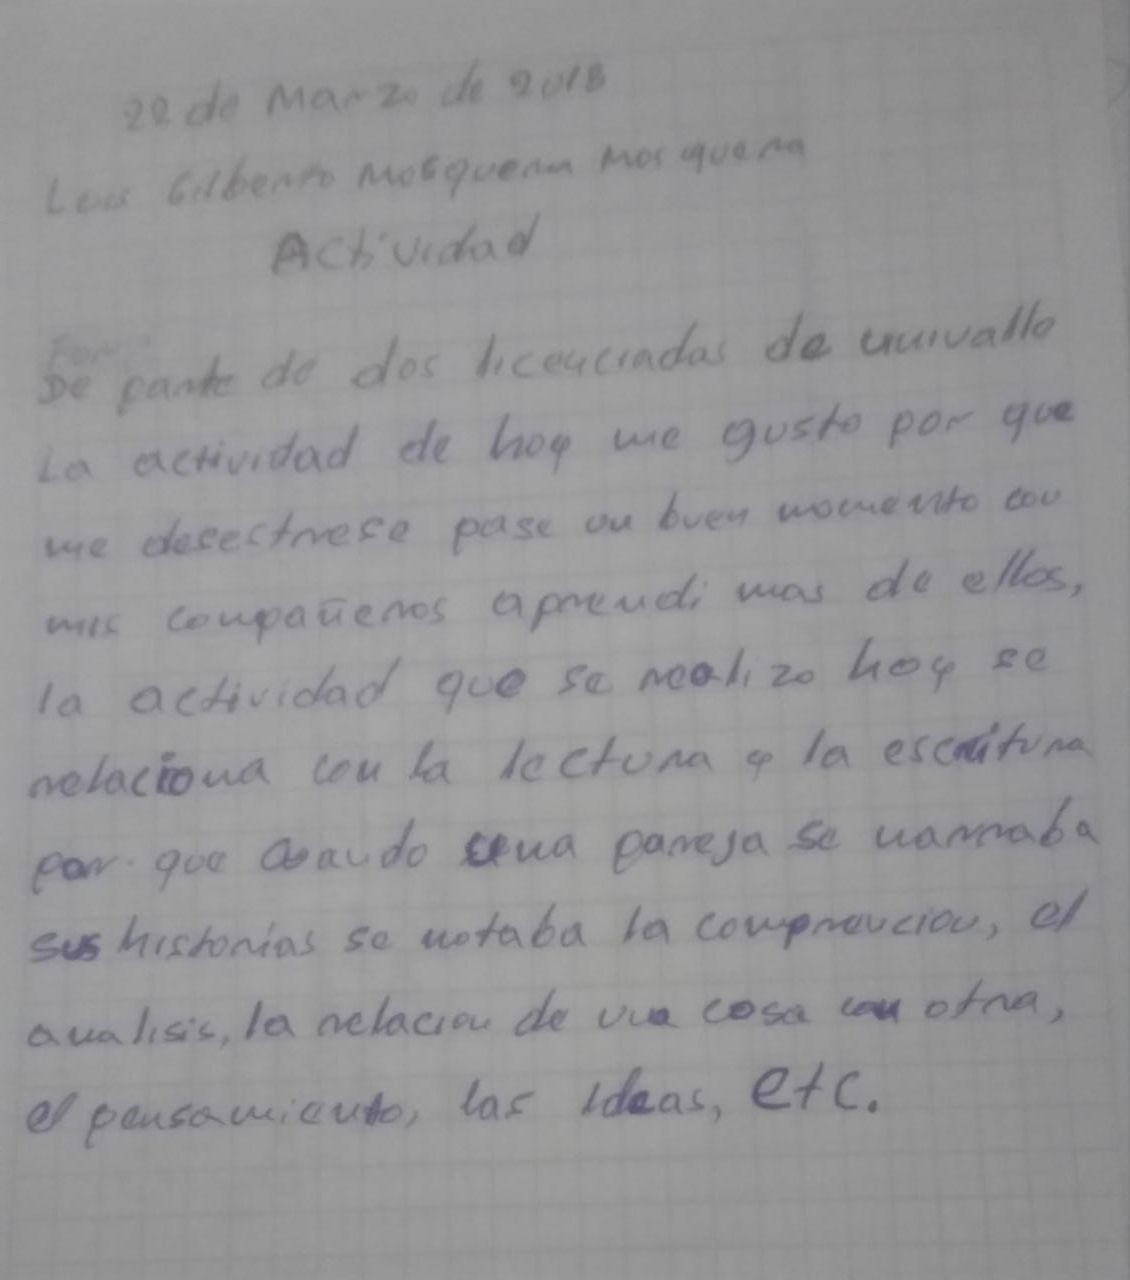 22 de Marzo de 2018
Luis Gilberto Mosquera Mosquera
Actividad
De parte de dos licenciadas de univalle
La actividad de hoy me gusto por que
me desestrese pase un buen momento con
mis compañeros aprendi mas de ellos,
la actividad que se realizo hoy se
relaciona con la lectura y la escritura
por que cuando una pareja se narraba
sus historias se notaba la comprencion, el
analisis, la relacion de una cosa con otra,
el pensamiento, las ideas, etc.